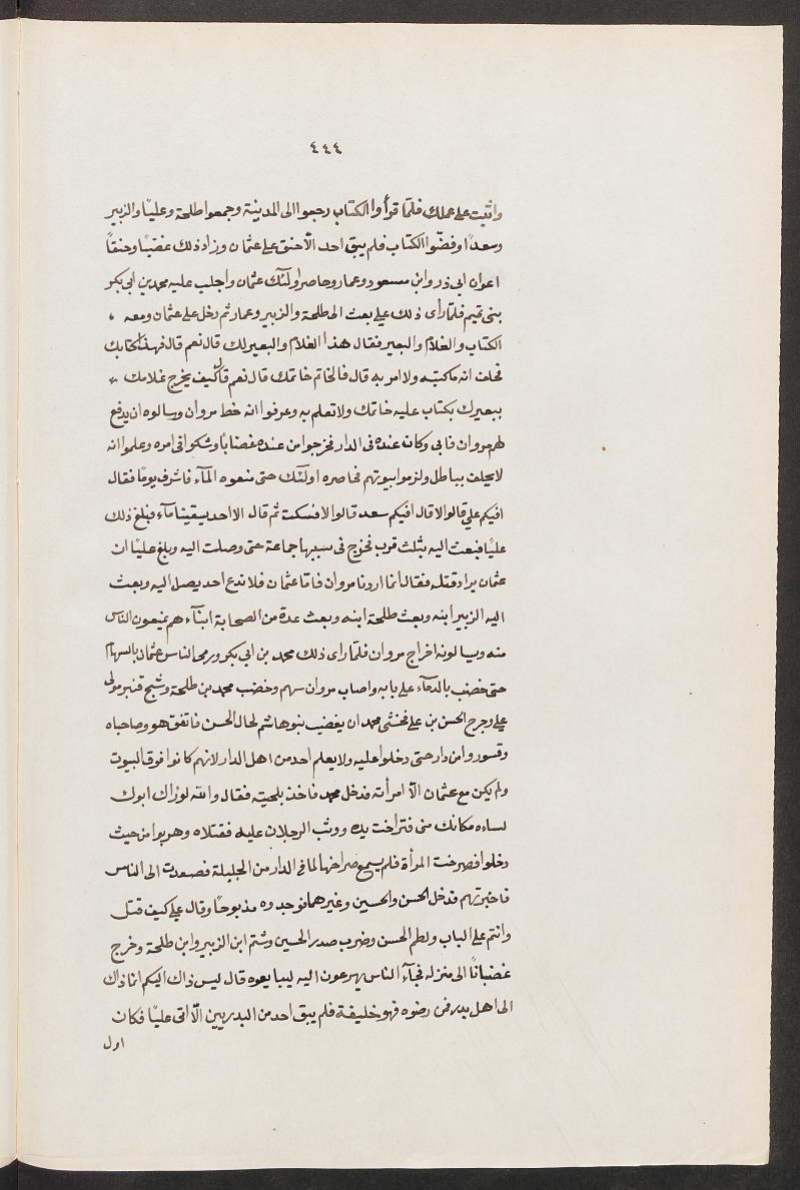 ٤٤٤
واثبت على عملك فلمّا قرأوا الكتاب رجعوا الى المدينة وجمعوا طلحة وعليًا والزبير
وسعدًا وفضّوا الكتاب فلم يبق احد الّا حنق على عثمان وزاد ذلك غضبًا وحنقاً
اعوان ابي ذر وابن مسعود وعمار وحاصر اولئك عثمان واجلب عليه محمد بن ابي بكر
بنى تميم فلمّا رأى ذلك على بعث الى طلحة والزبير وعمار ثم دخل على عثمان ومعه
الكتاب والغلام والبعير فقال هذا الغلام والبعير لك قال نعم قال فهذا كتابك
فحلف انه ما كتبه ولا امر به قال فالخاتم خاتمك قال نعم قال كيف يخرج غلامك
ببعيرك بكتاب عليه خاتمك ولا تعلم به وعرفوا انه خط مروان وسالوه ان يدفع
لهم مروان فابى وكان عنده فى الدار فخرجوا من عنده غضابًا وشكوا فى امره وعلموا انه
لا يحلف بباطل ولزموا بيوتهم فحاصره اولئك حتى منعوه المآء فاشرف يومًا فقال
افيكم على قالوا لا قال افيكم سعد قالوا لا فسكت ثم قال الا احد يسقينا مآء فبلغ ذلك
عليًا فبعث اليه بثلث قرب فخرج فى سببها جماعة حتى وصلت اليه وبلغ عليًا ان
عثمان يراد قتله فقال انما اردنا مروان فاما عثمان فلا ندع احد يصل اليه وبعث
اليه الزبير ابنه وبعث طلحة ابنه وبعث عدة من الصحابة ابنآءهم يمنعون الناس
منه ويسالونه اخراج مروان فلمّا راى ذلك محمد بن ابي بكر ورمى الناس عثمان بالسهام
حتى خضب بالدمآء على بابه واصاب مروان سهم وخضب محمد بن طلحة وشج قنبر مولى
على وجرح الحسن بن على فخشى محمد ان يغضب بنو هاشم لحال الحسن فاتفق هو وصاحباه
وتسوروا من دار حتى دخلوا عليه ولا يعلم احد من اهل الدار لانهم كانوا فوق البيوت
ولم يكن مع عثمان الّا امرأته فدخل محمد فاخذ بلحيته فقال والله لو راك ابوك
لساءه مكانك منى فتراخت يده ووثب الرجلان عليه فقتلاه وهربوا من حيث
دخلوا فصرخت المرأة فلم يسمع صراخها لما فى الدار من الجليلة فصعدت الى الناس
فاخبرتهم فدخل الحسن والحسين وغيرهما فوجدوه مذبوحًا وقال على كيف قتل
وانتم على الباب ولطم الحسن وضرب صدر الحسين وشتم ابن الزبير وابن طلحة وخرج
غضبانًا الى منزله فجآء الناس يهرعون اليه ليبايعوه قال ليس ذاك اليكم انما ذاك
الى اهل بدر فمن رضوه فهو خليفة فلم يبق احد من البدريين الّا اتى عليًا فكان
اول